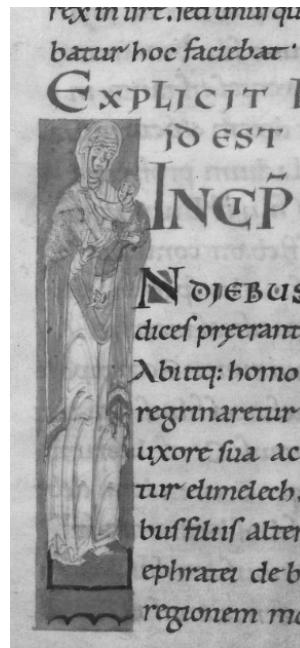 rex in isrł. sed unusqu
batur hoc faciebat
EXPLICIT
ID EST
INCIP̄
N DIEBUS
dices preerant
Abiitq: homo
regrinaretur
uxore sua ac
tur elimelech.
bus filiis alter
ephratei de b
regionem mo